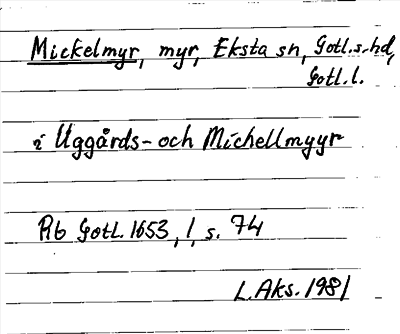 Mickelmyr, myr, Eksta sn, Gotl.s.hd,
Gotl.l.
i Uggårds- och Michellmyyr
Rb Gotl. 1653, 1, s. 74
L.Aks. 1981